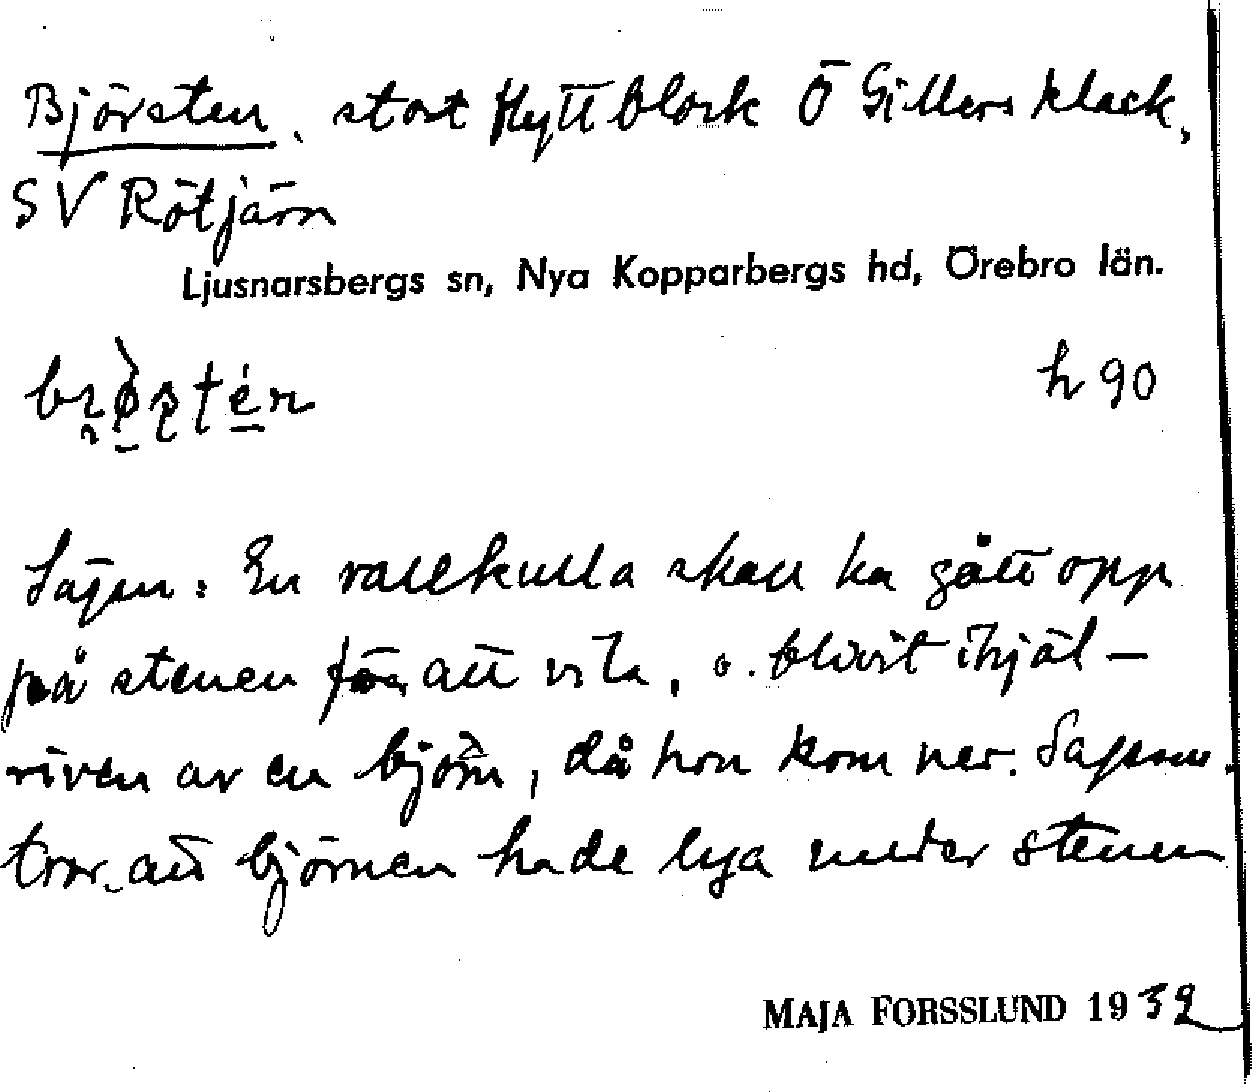 Björsten, stort flyttblock Ö Gillersklack,
SV Rötjärn
Ljusnarsbergs sn, Nya Kopparbergs hd, Örebro län.
h 90
Sägen: En vallkulla skall ha gått opp
på stenen för att vila, o. blivit ihjäl-
riven av en björn, då hon kom ner.
tror att björnen hade lya under stenen
MAJA FORSSLUND 1932